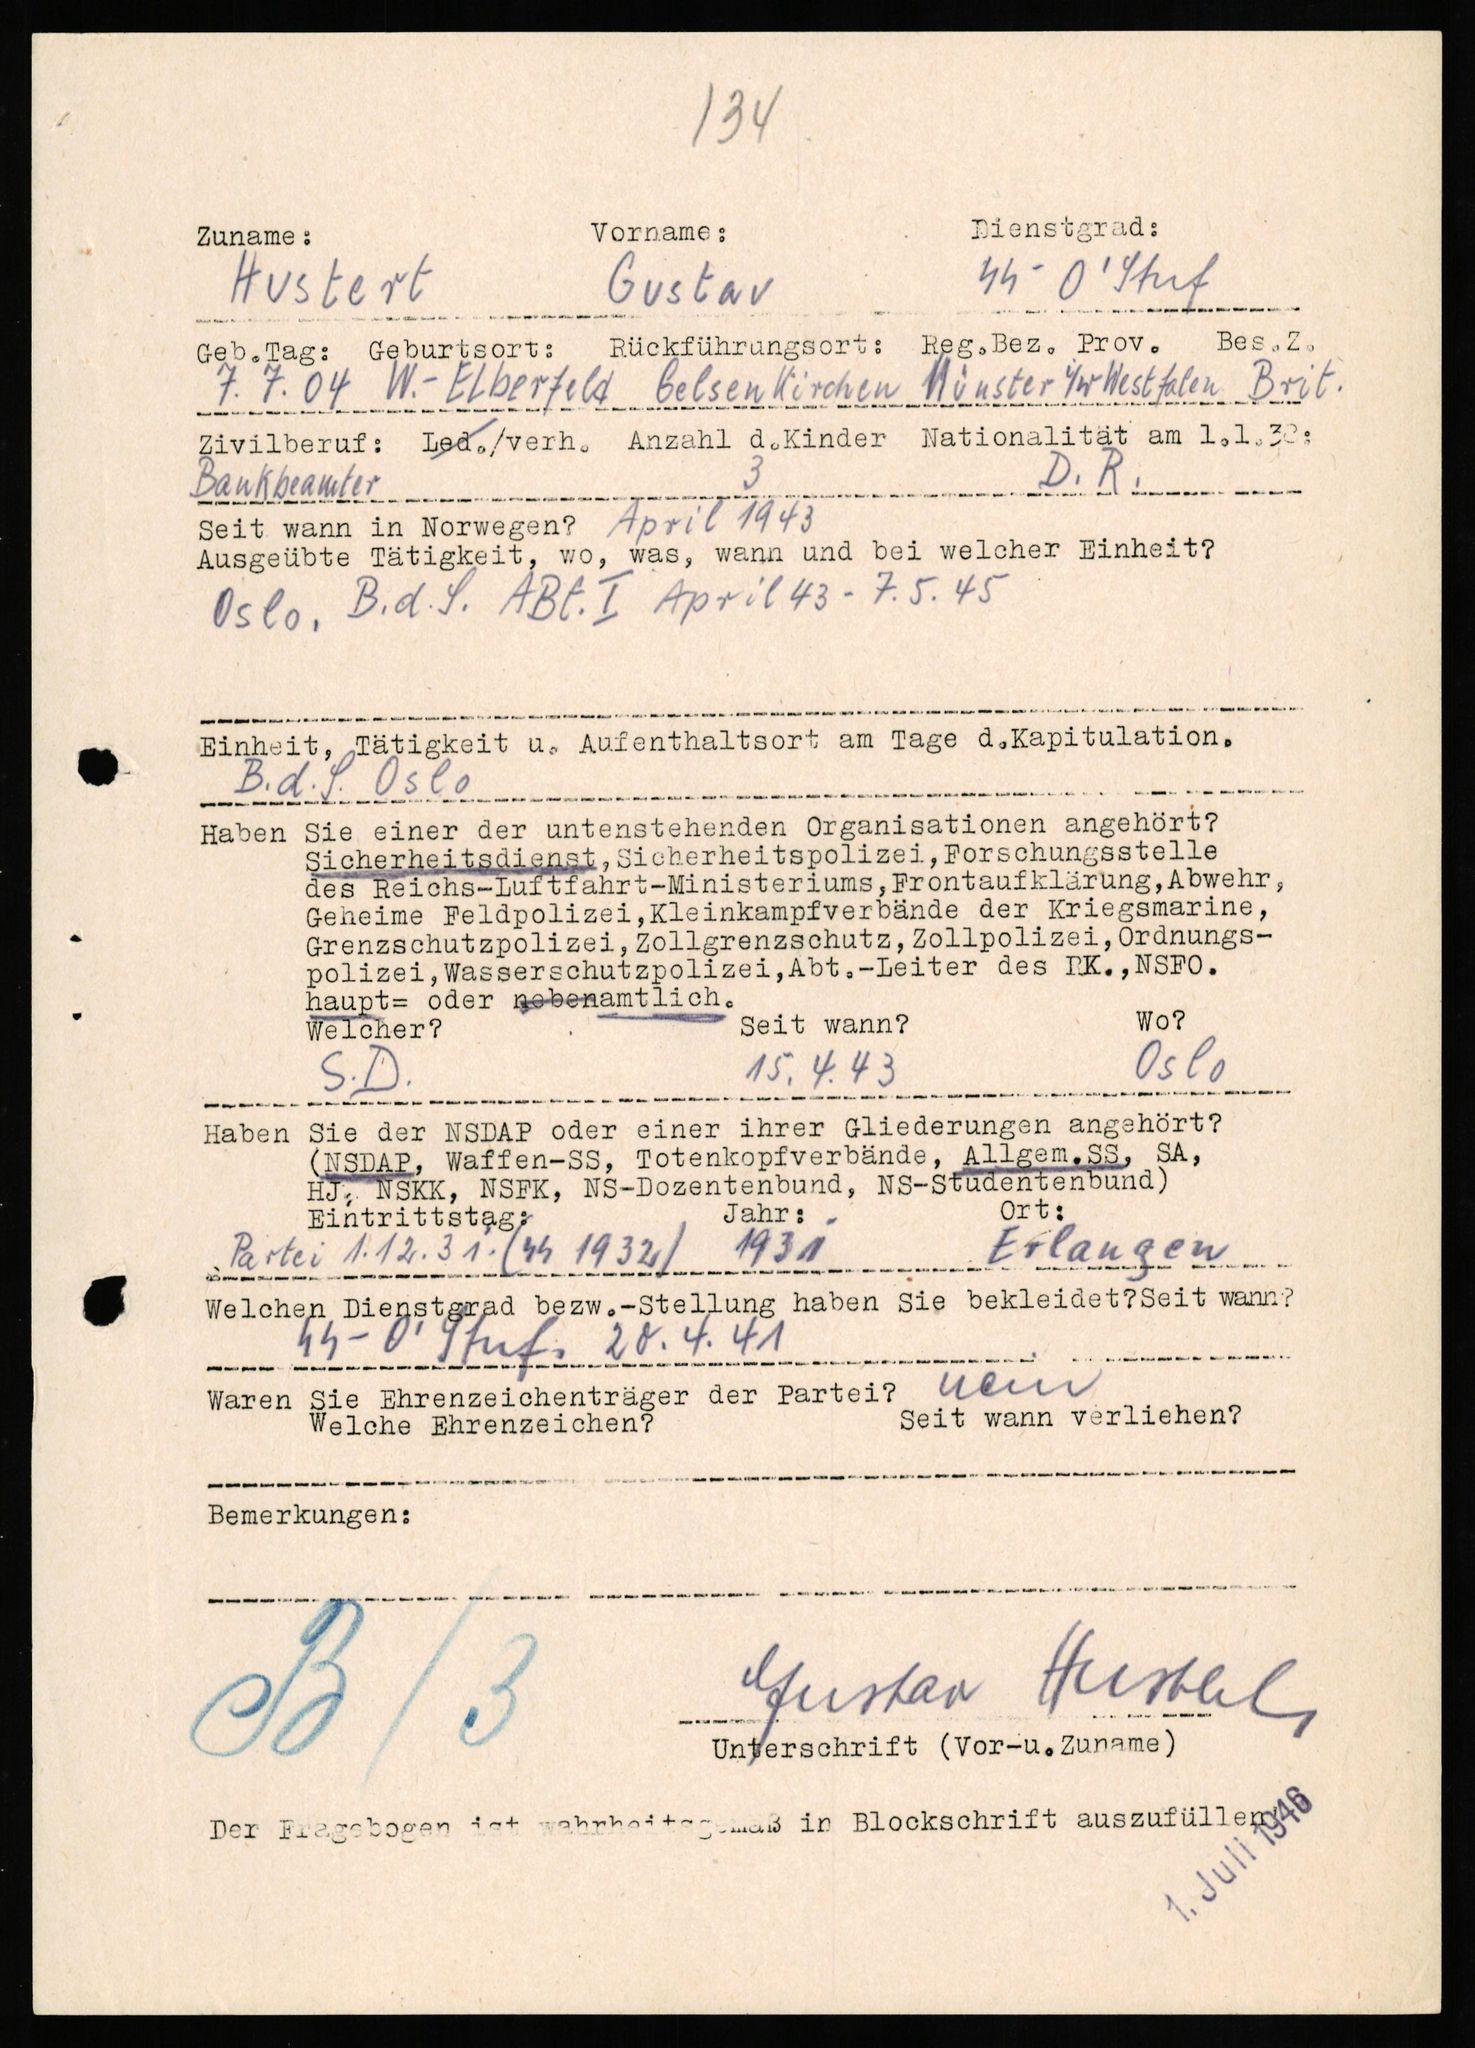 134
Zuname: Vorname: Dienstgrad:
Hustert Gustav SS- O'Stuf
Geb.Tag: Geburtsort: Rückführungsort: Reg.Bez. Prov. Bes.Z.
7.7.04 W.-Elberfeld Gelsenkirchen Münster i/w Westfalen Brit.
Zivilberuf: Led./verh. Anzahl d.Kinder Nationalität am 1.1.38:
Bankbeamter 3 D.R.
Seit wann in Norwegen? April 1943
Ausgeübte Tätigkeit, wo, was, wann und bei welcher Einheit?
Oslo. B.d.S. ABt. I April 43 - 7.5.45
Einheit, Tätigkeit u. Aufenthaltsort am Tage d.Kapitulation.
B.d.S. Oslo
Haben Sie einer der untenstehenden Organisationen angehört?
Sicherheitsdienst, Sicherheitspolizei, Forschungsstelle
des Reichs-Luftfahrt-Ministeriums, Frontaufklärung, Abwehr,
Geheime Feldpolizei, Kleinkampfverbände der Kriegsmarine,
Grenzschutzpolizei, Zollgrenzschutz, Zollpolizei, Ordnungs-
polizei, Wasserschutzpolizei, Abt.-Leiter des RK., NSFO.
haupt= oder nebenamtlich.
Welcher? Seit wann? Wo?
S.D. 15.4.43 Oslo
Haben Sie der NSDAP oder einer ihrer Gliederungen angehört?
(NSDAP, Waffen-SS, Totenkopfverbände, Allgem.SS, SA,
HJ, NSKK, NSFK, NS-Dozentenbund, NS-Studentenbund)
Eintrittstag: Jahr: Ort:
Partei 1.12.31. (SS 1932) 1931 Erlangen
Welchen Dienstgrad bezw.-Stellung haben Sie bekleidet? Seit wann?
SS- O'Stuf. 20.4.41
Waren Sie Ehrenzeichenträger der Partei? nein
Welche Ehrenzeichen? Seit wann verliehen?
Bemerkungen:
B/3 Gustav Hustert
Unterschrift (Vor-u.Zuname)
Der Fragebogen ist wahrheitsgemäß in Blockschrift auszufüllen.
1. Juli 1946